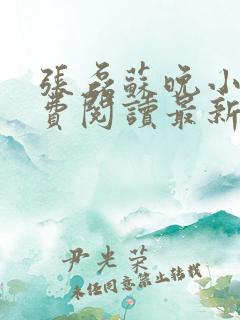 張磊蘇晚小
費閱讀最新
尹光荣
未经同意禁止转载